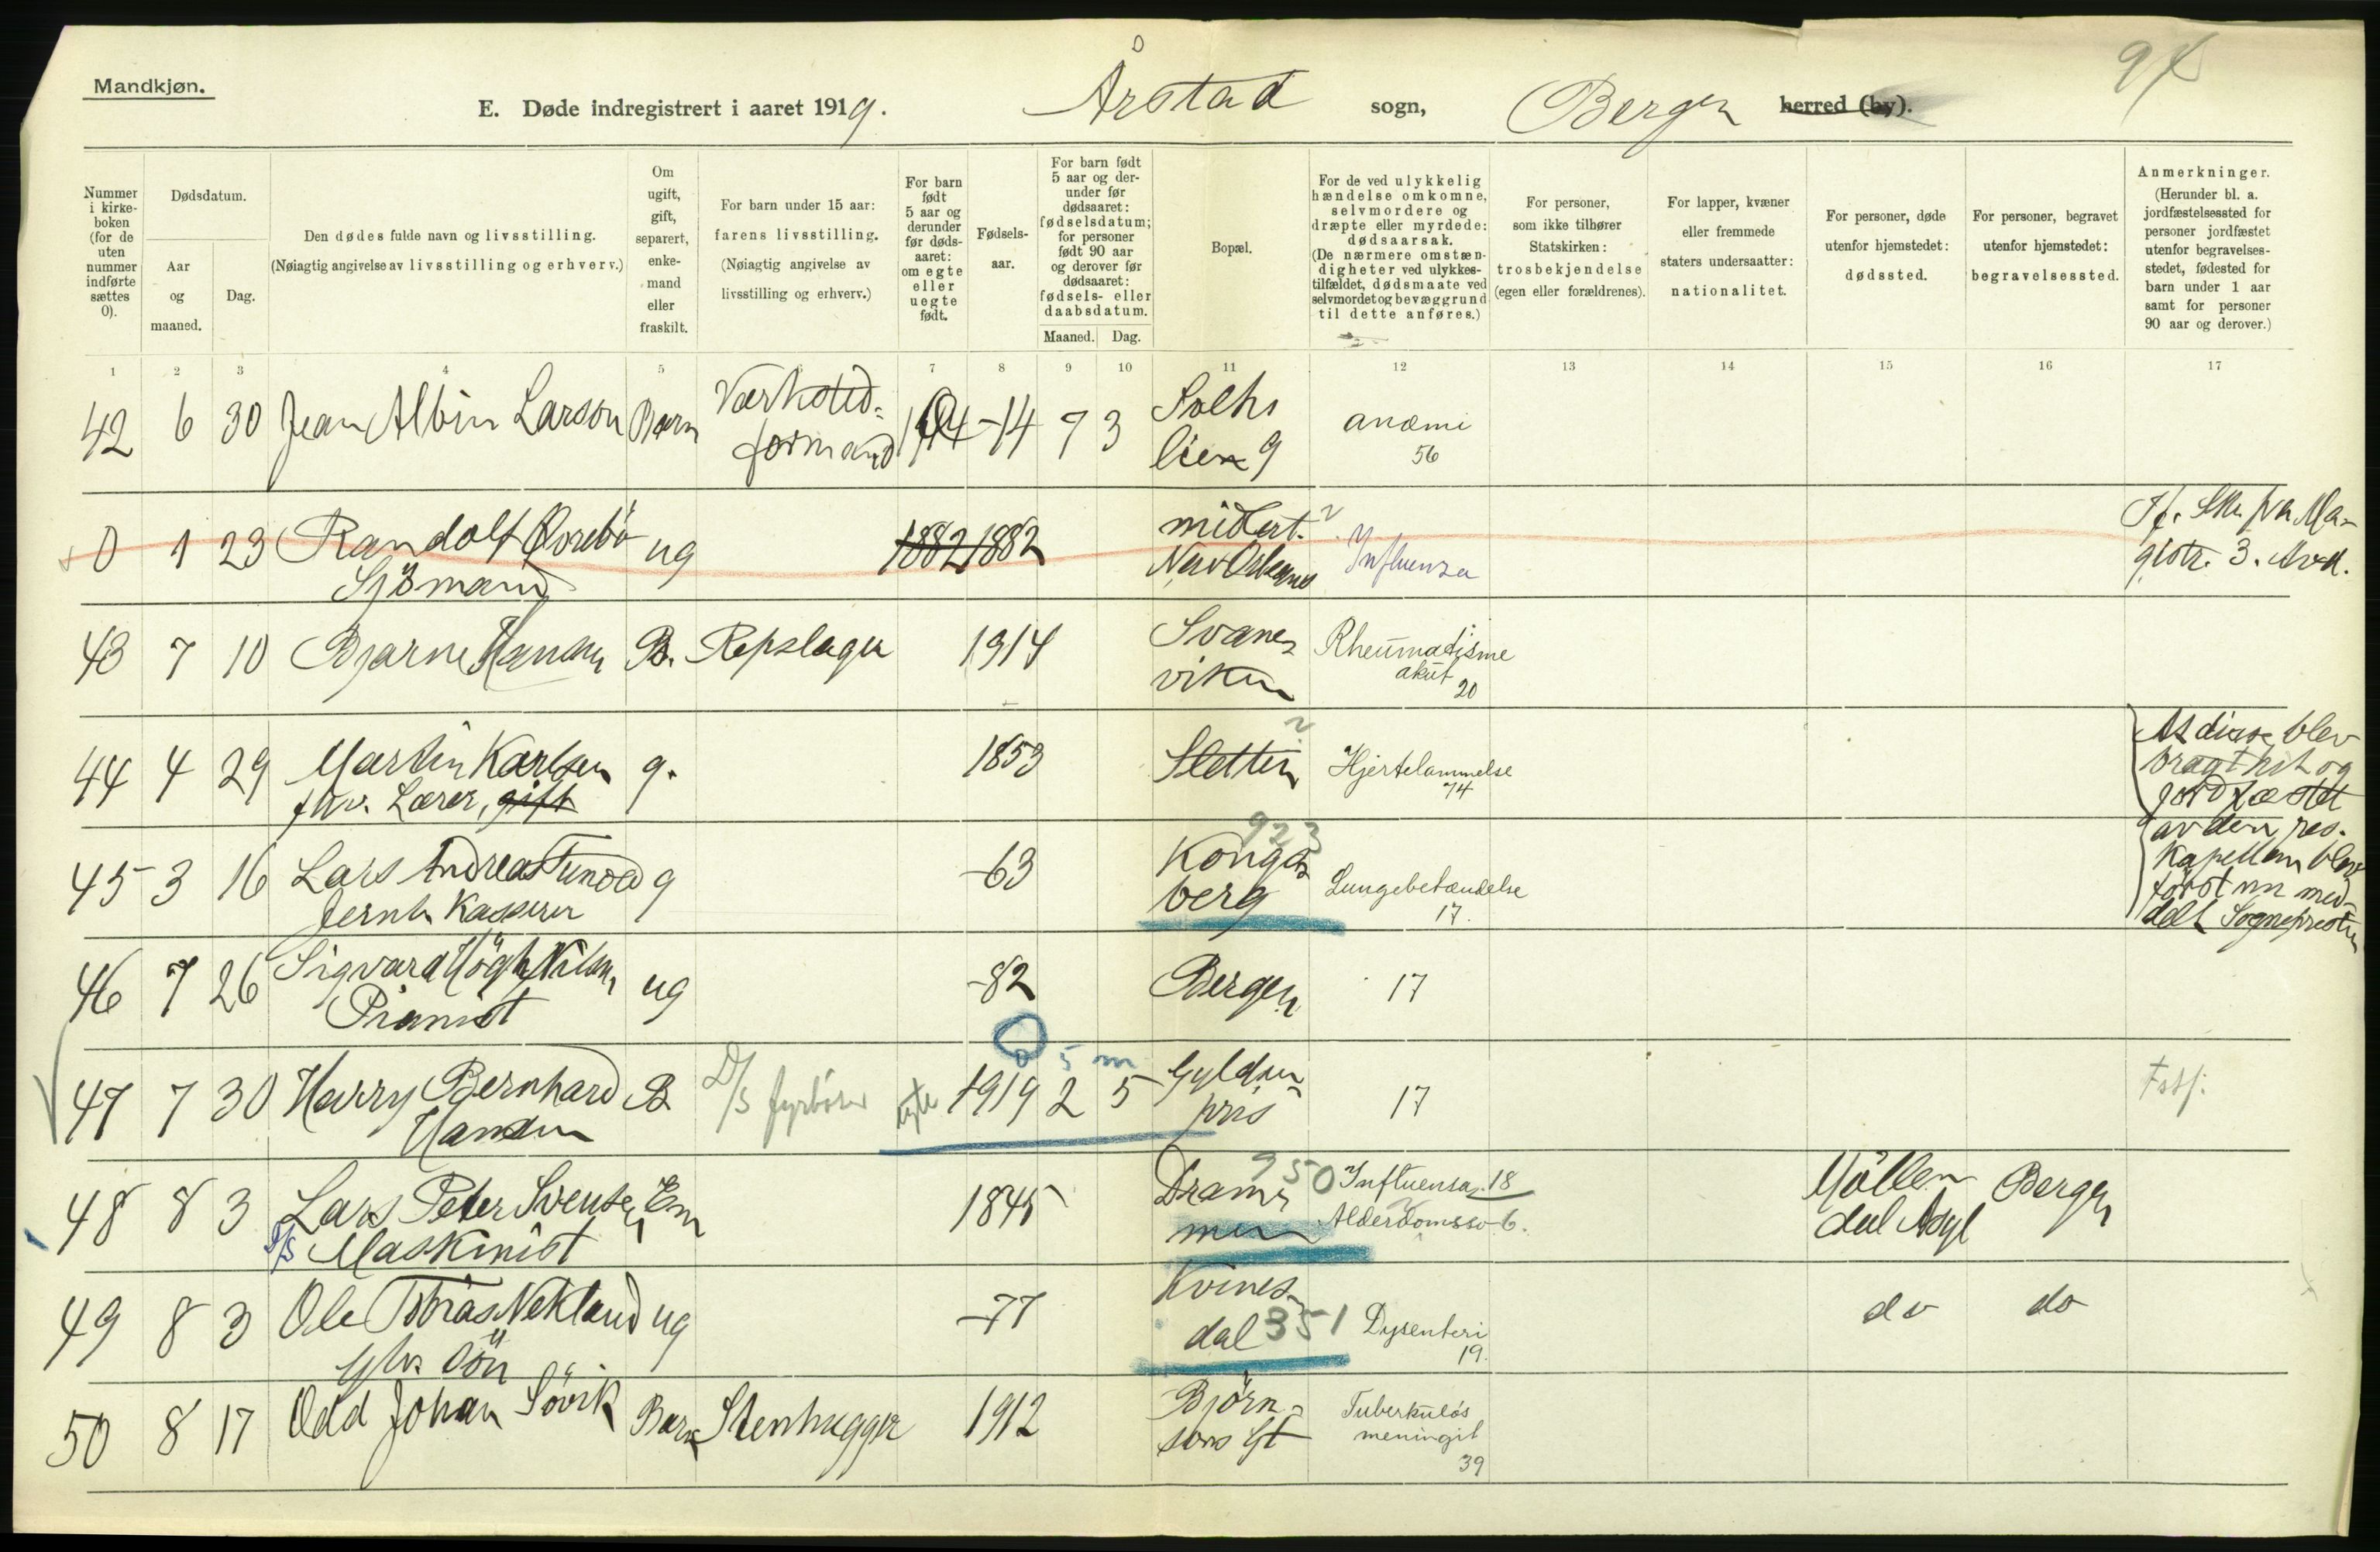 Mandkjøn.
E. Døde indregistrert i aaret 1919. Årstad sogn, Bergen herred (by).
Nummer i kirkeboken (for de uten nummer indførte sættes 0).
Dødsdatum.
Aar og maaned.
Dag.
Den dødes fulde navn og livsstilling.
(Nøiagtig angivelse av livsstilling og erhverv.)
Om ugift, gift, separert, enkemand eller fraskilt.
For barn under 15 aar:
farens livsstilling.
(Nøiagtig angivelse av livsstilling og erhverv.)
For barn født 5 aar og derunder før dødsaaret: om egte eller uegte født.
Fødselsaar.
For barn født 5 aar og derunder før dødsaaret: fødselsdatum; for personer født 90 aar og derover før dødsaaret: fødsels- eller daabsdatum.
Maaned. Dag.
Bopæl.
For de ved ulykkelig hændelse omkomne, selvmordere og dræpte eller myrdede: dødsaarsak.
(De nærmere omstændigheter ved ulykkestilfældet, dødsmaate ved selvmordet og bevæggrund til dette anføres.)
For personer, som ikke tilhører Statskirken: trosbekjendelse (egen eller forældrenes).
For lapper, kvæner eller fremmede staters undersaatter: nationalitet.
For personer, døde utenfor hjemstedet: dødssted.
For personer, begravet utenfor hjemstedet: begravelsessted.
Anmerkninger.
(Herunder bl. a. jordfæstelsessted for personer jordfæstet utenfor begravelsesstedet, fødested for barn under 1 aar samt for personer 90 aar og derover.)
1 2 3 4 5 7 8 9 10 11 12 13 14 15 16 17
42 6 30 Jean Albin Larson Barn Værksted- -14 7 3 Solhs
formand lien 9 anæmi
56
0 1 23 Randolf Øvrebö ug 1882 1882 midert. Influenza
Sjömand New Orleans
gistr. 3. Avd.
43 7 10 Bjarne Hansen B. Repslager 1914 Svane- Rheumatisme
viken akut 20
44 4 29 Martin Karlsen g. 1853 Sletten Hjertelammelse
fhv. Lærer, gift 74
At disse blev
bragt hit og
jordfæstet
45 3 16 Lars Andreas Tunold g -63 Kongs 923 Lungebetændelse
Jernb. Kasserer berg 17.
av den res.
Kapellan blev
först nu med-
delt Sognepresten
46 7 26 Sigvard Högh Nilsen ug -82 Bergen 17
Pianist
0 5 m
47 7 30 Harry Bernhard B D/S fyrböter egte 1919 2 5 Gylden 17
Hansen pris
48 8 3 Lars Peter Svensen Em 1845 Dram- 950 Influensa. 18 Möllen- Bergen
D/S Maskinist men Alderdomssv. 6. dal Asyl
49 8 3 Ole Tobias Nekland ug -77 Kvines-
dal 351 Dysenteri do do
gbr. sön 19.
50 8 17 Odd Johan Sövik Barn Stenhugger 1912 Björn- Tuberkulös
sons Gt meningit
39